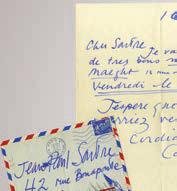 Cher Sartre je va
de tres bons
Maeght
Vendredi - le
J'espère que
pourriez ve
Cordia
Co
Jean Paul Sartre
42 rue Bonaparte